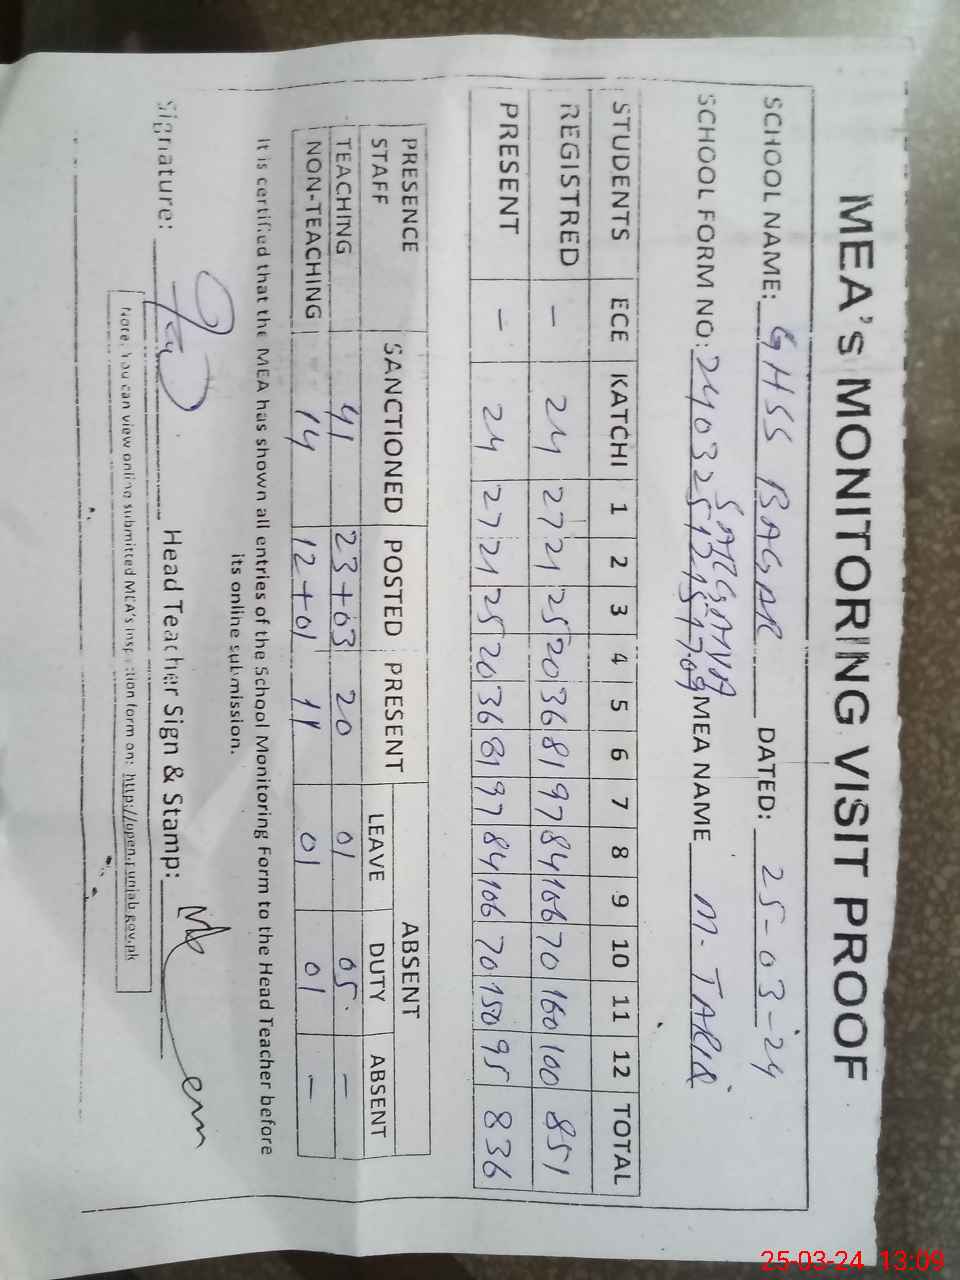 MEA's MONITORING VISIT PROOF
SCHOOL NAME: GHSS BAGAR SARGANA DATED: 25-03-24
SCHOOL FORM NO: MEA NAME M. TARIQ
STUDENTS ECE KATCHI 1 2 3 4 5 6 7 8 9 10 11 12 TOTAL
REGISTRED - 24 27 21 25 20 36 81 97 84 106 70 160 100 851
PRESENT - 24 27 21 25 20 36 81 97 84 106 70 150 95 836
PRESENCE STAFF SANCTIONED POSTED PRESENT ABSENT
LEAVE DUTY ABSENT
TEACHING 41 23+03 20 01 05 -
NON-TEACHING 14 12+01 11 01 01 -
It is certified that the MEA has shown all entries of the School Monitoring Form to the Head Teacher before
its online submission.
Signature: Head Teacher Sign & Stamp:
Note. You can view online submitted MEA's inspection form on: http://open.punjab.gov.pk
25-03-24 13:09